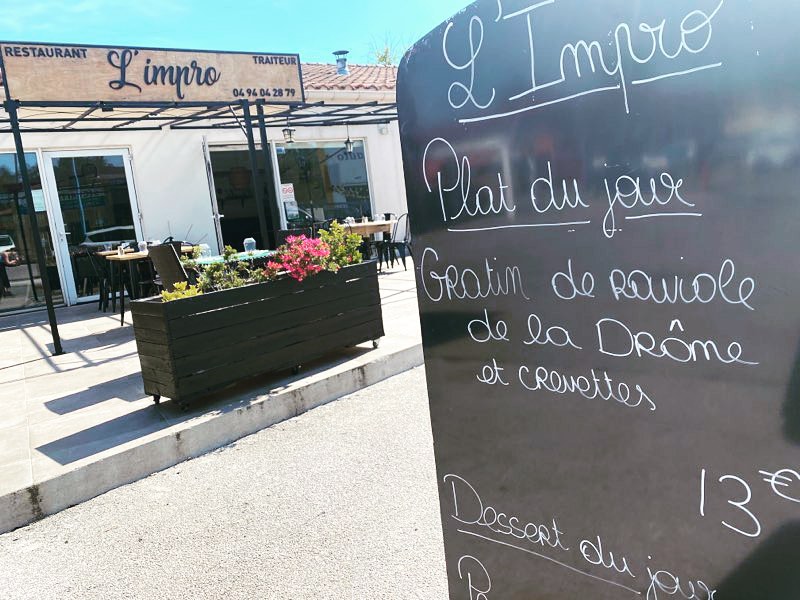 RESTAURANT
L'impro
TRAITEUR
04 94 04 28 79
L'Impro
Plat du jour
Gratin de raviole
de la Drôme
et crevettes
13 €
Dessert du jour